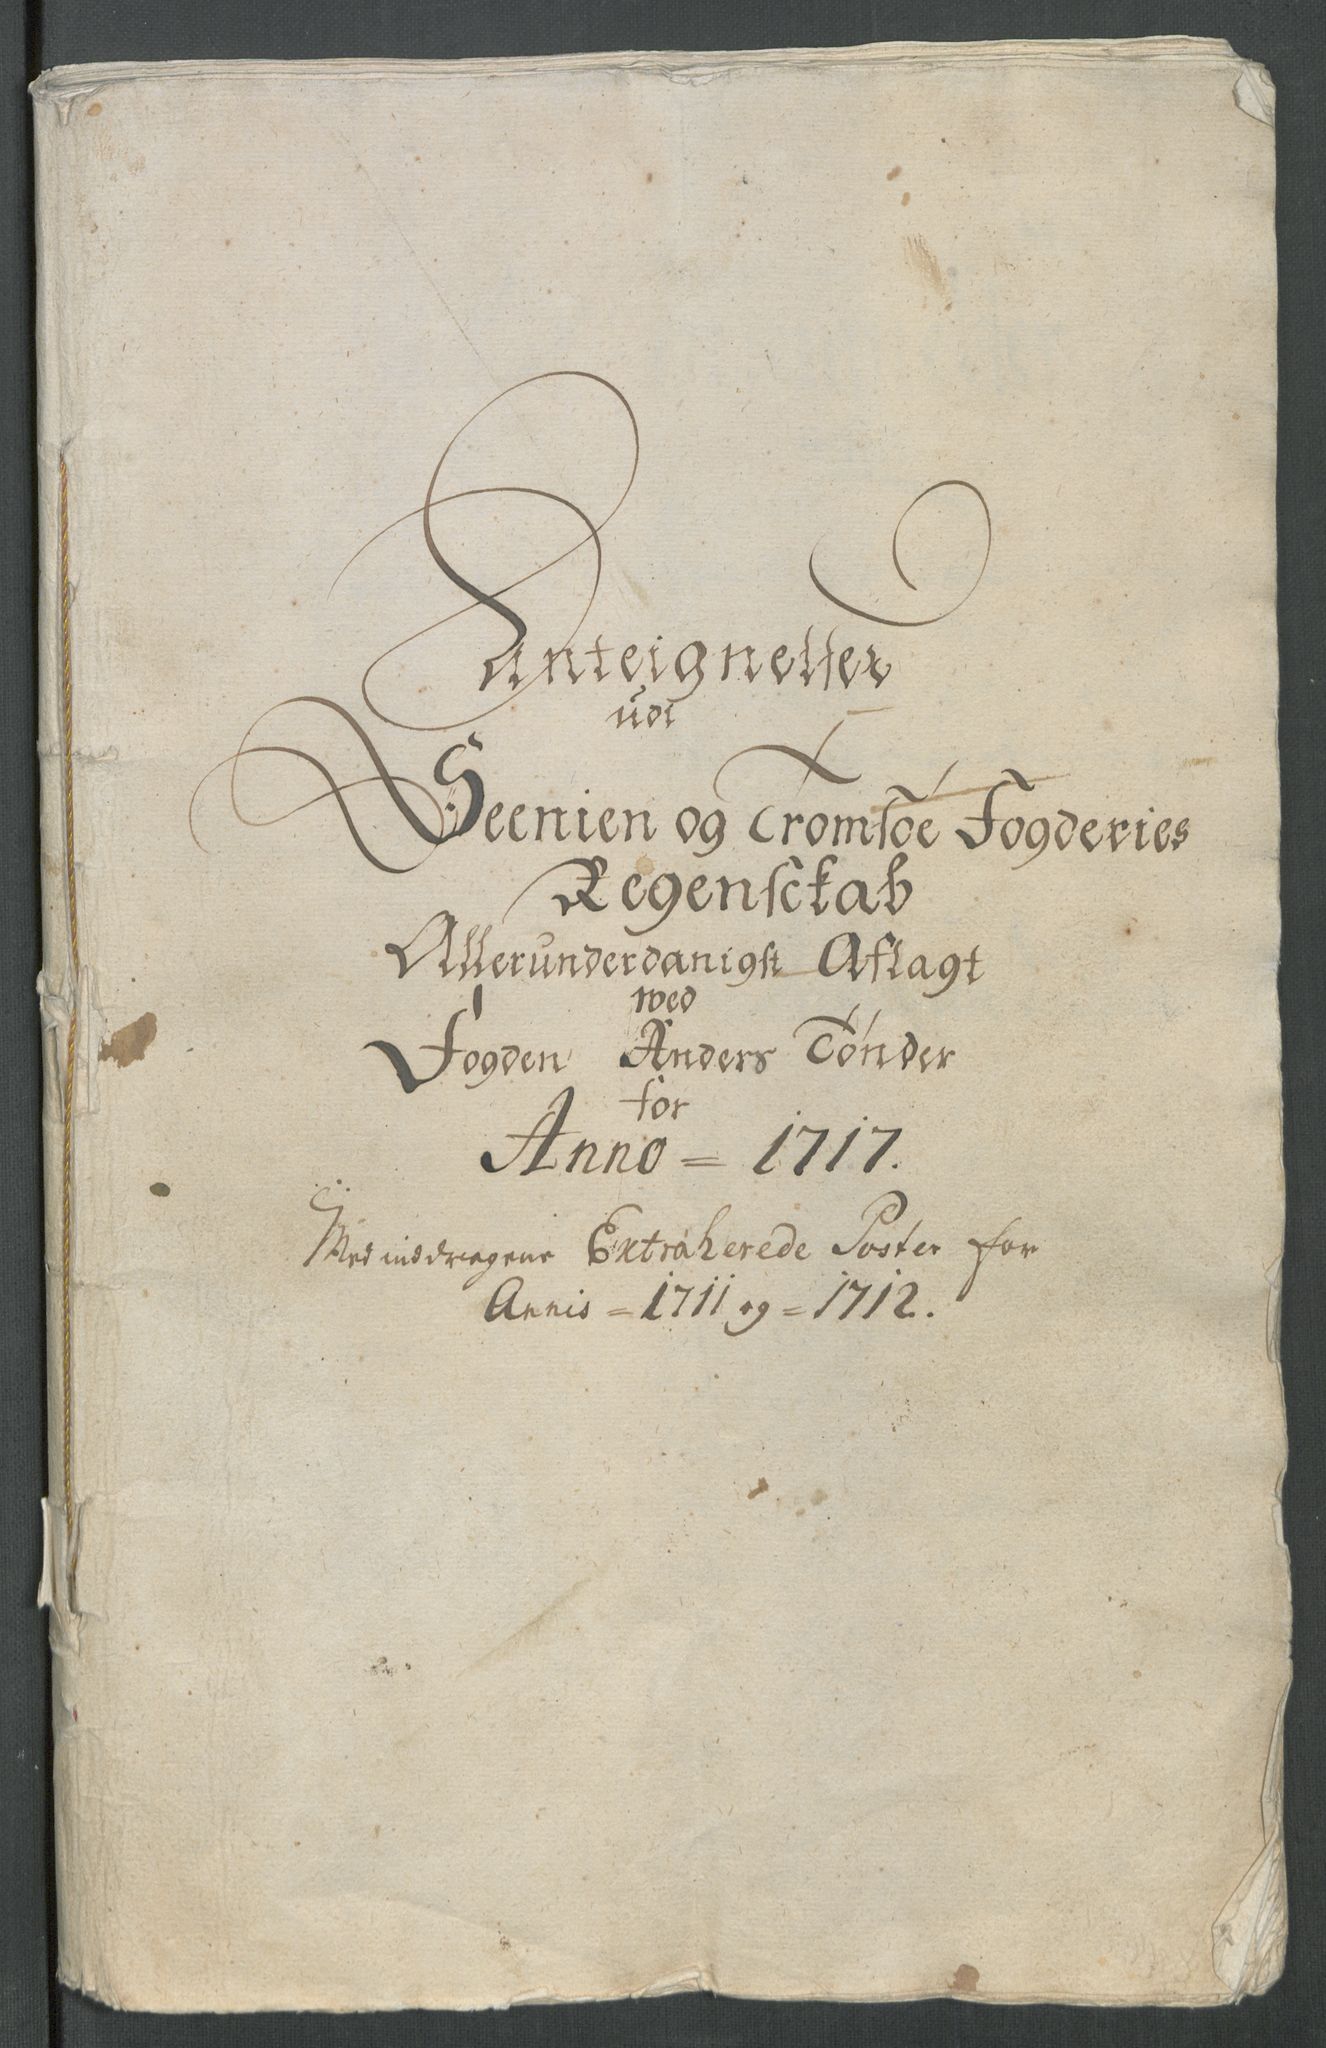 Anteignelser
udi
Seenien og Tromsøe Fogderies
Regensckab
Allerunderdanigst Aflagt
wed
Fogden Anders Tønder
for
Anno = 1717.
Med inddragene Extraherede Poster for
Annis = 1711 og = 1712.